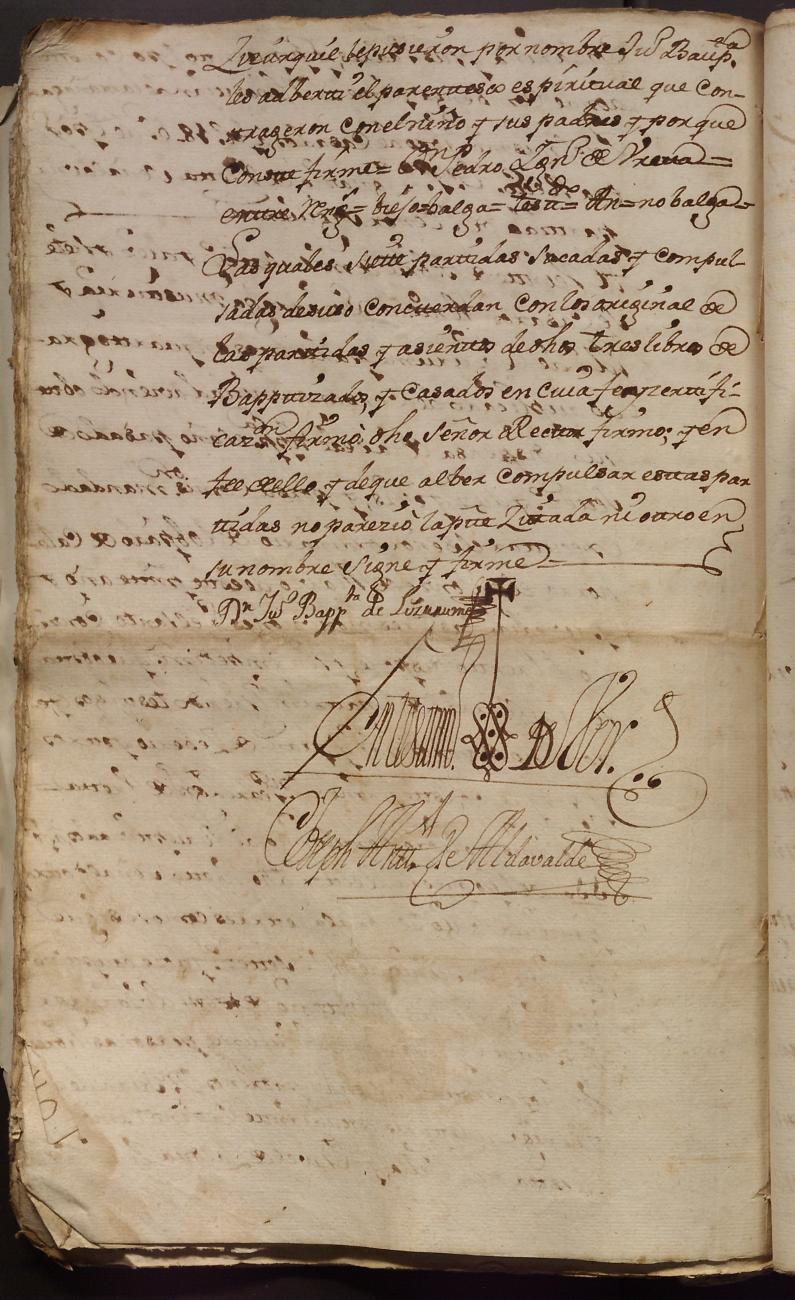 Zicurquie le pusieron por nombre Ju.º Baup.ta
les adberti el parentesco espiritual que con-
trageron con el niño y sus padres y por que
Conste firme= Pedro Ign.º de Vreua=
entre Reng.s= bieso= balga= testdo= An= no balga=
Las quales siette partidas sacadas y compul-
sadas de suso concuerdan con los original de
las partidas y asientos de dhos tres libros de
Bapptizados, y Casados en cuia fee y zertifi-
cazon firmo dho señor Rector firmo; y en
fee de ello y de que al ber compulsar estas par
ttidas no parezio la pte Zittada ni otro en
su nombre Signe y firme
Dn Juº Bappta de
En testim.º de Ver.d
Joseph Antt.º de Aldavalde